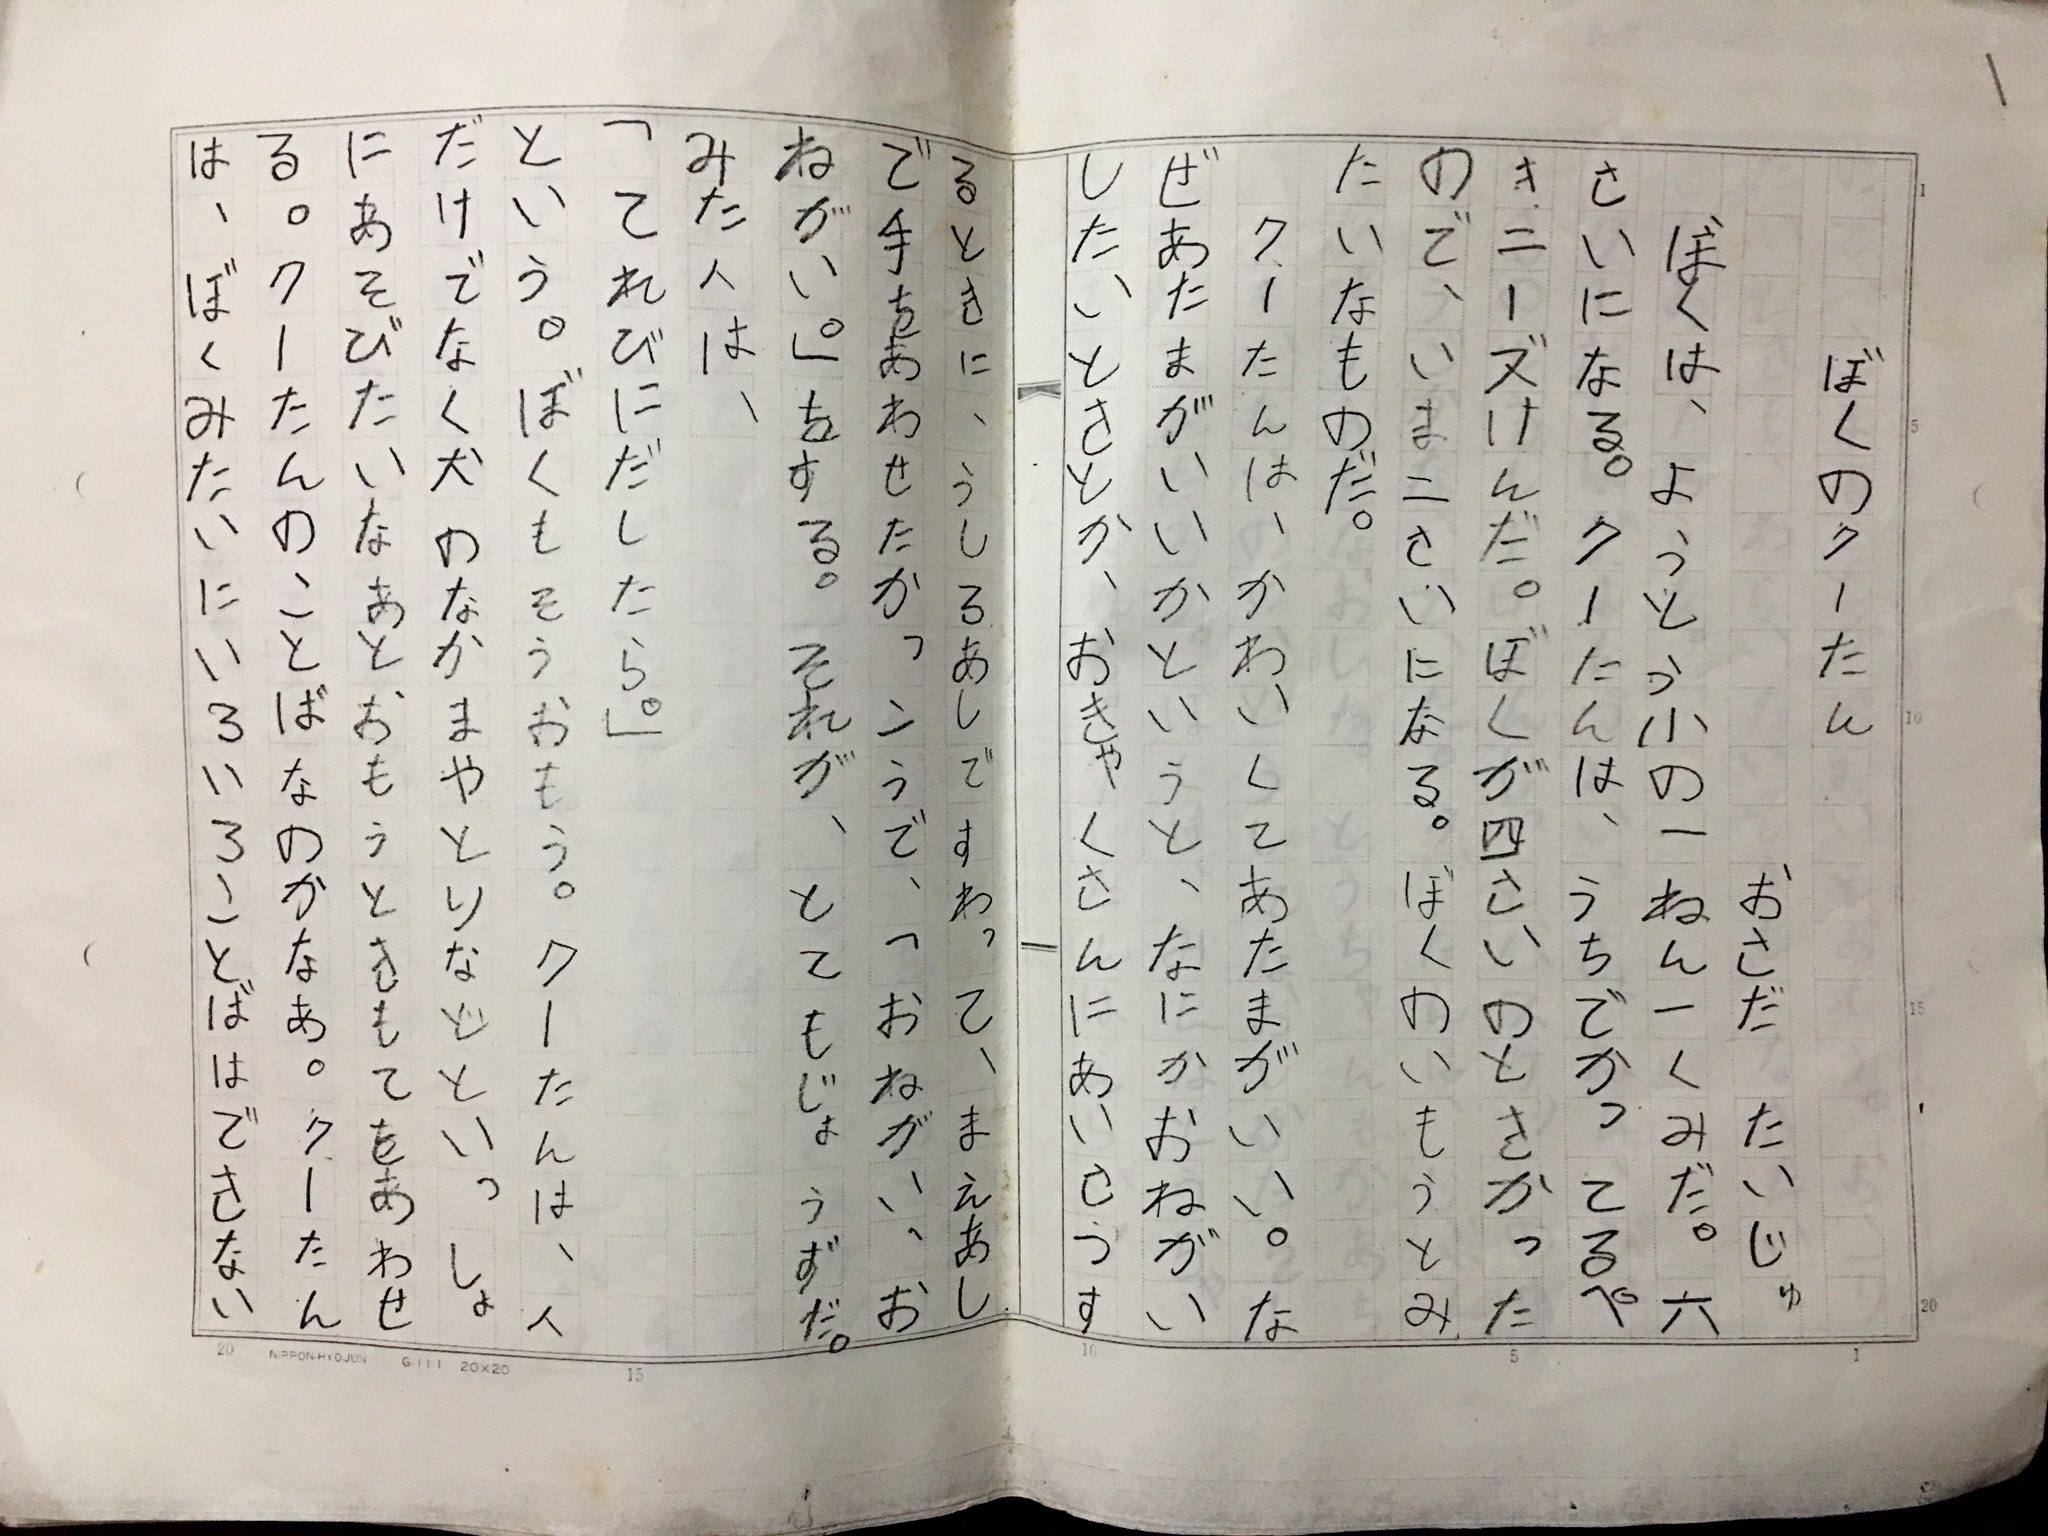 ぼくのクーたん
おさだ たいじゅ
ぼくは、ようとう小の一ねん一くみだ。六
さいになる。クーたんは、うちでかってるペ
キニーズけんだ。ぼくが四さいのときかった
ので、いま二さいになる。ぼくのいもうとみ
たいなものだ。
クーたんは、かわいくてあたまがいい。な
ぜあたまがいいかというと、なにかおねがい
したいときとか、おきゃくさんにあいさつす
るときに、うしろあしですわって、まえあし
で手をあわせたかっこうで、「おねがい、お
ねがい。」をする。それが、とてもじょうずだ。
みた人は、
「てれびにだしたら。」
という。ぼくもそうおもう。クーたんは、人
だけでなく犬のなかまやとりなどといっしょ
にあそびたいなあとおもうときもてをあわせ
る。クーたんのことばなのかなあ。クーたん
は、ぼくみたいにいろいろことばはできない
1
5
10
15
20
1
5
10
15
20
NIPPON-HYOJUN G-111 20×20